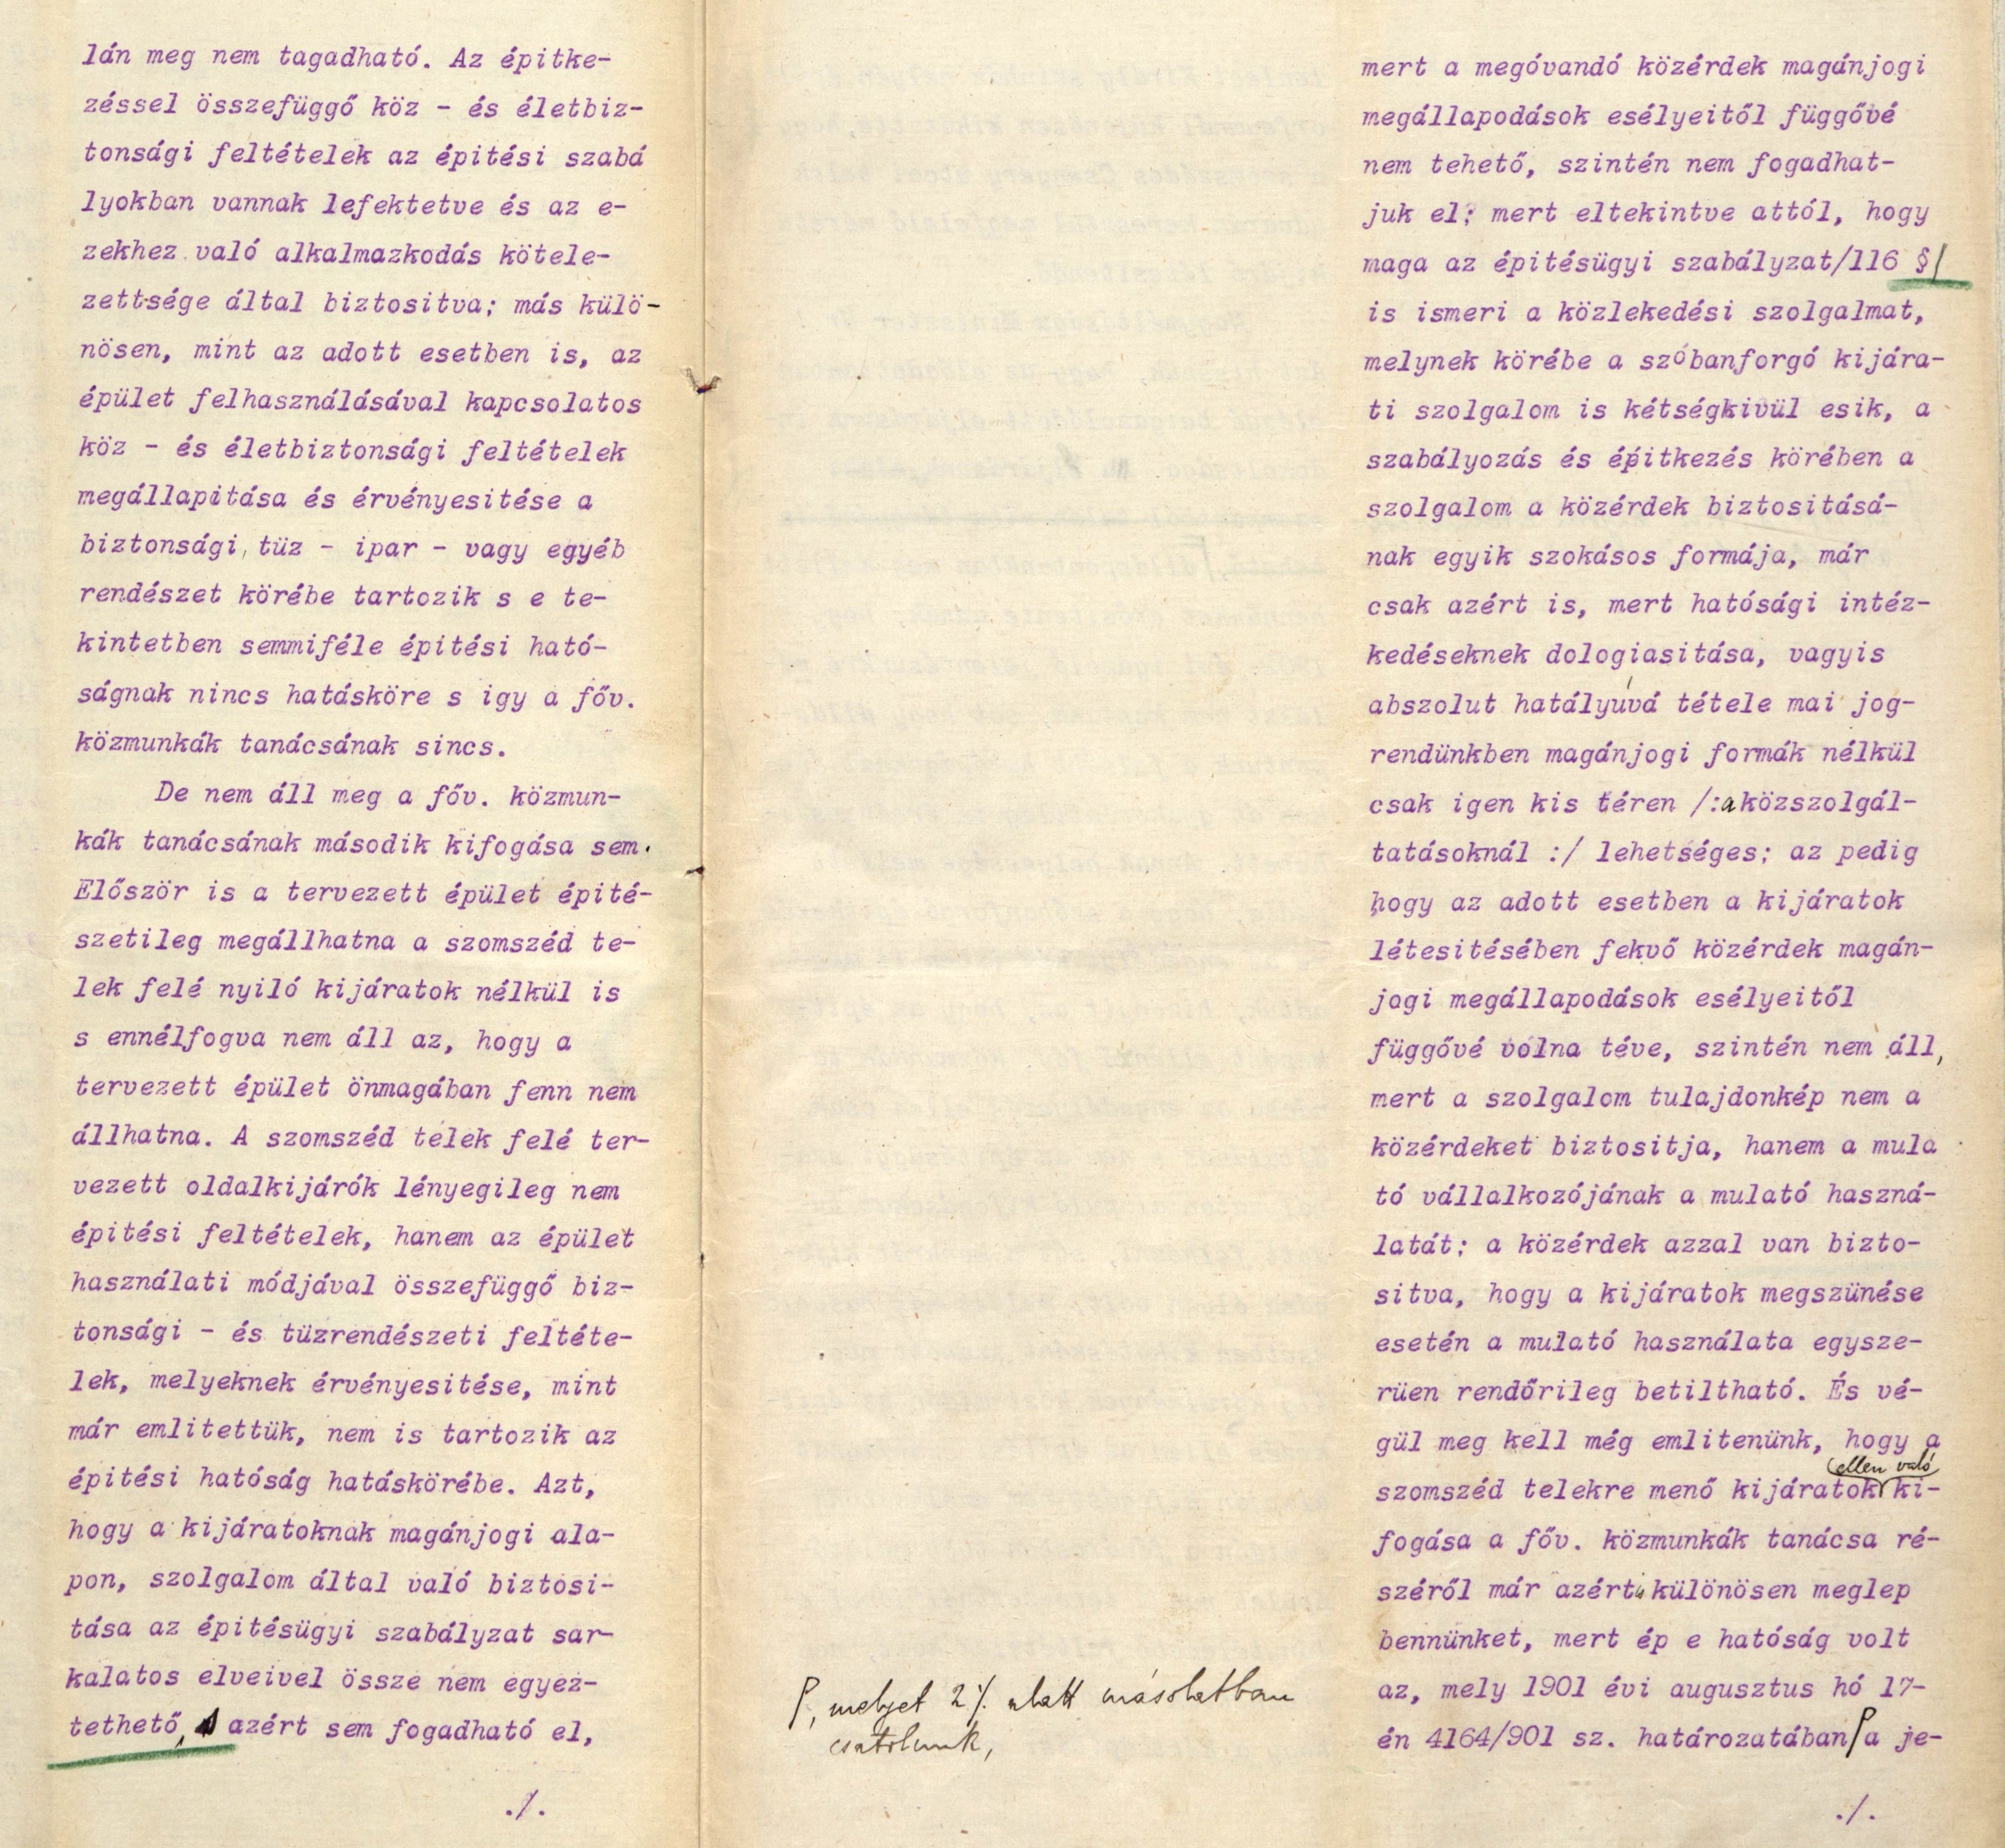 lán meg nem tagadható. Az épitke-
zéssel összefüggő köz - és életbiz-
tonsági feltételek az épitési szabá
lyokban vannak lefektetve és az e-
zekhez való alkalmazkodás kötele-
zettsége által biztositva; más külö-
nösen, mint az adott esetben is, az
épület felhasználásával kapcsolatos
köz - és életbiztonsági feltételek
megállapitása és érvényesitése a
biztonsági, tüz - ipar - vagy egyéb
rendészet körébe tartozik s e te-
kintetben semmiféle épitési ható-
ságnak nincs hatásköre s igy a főv.
közmunkák tanácsának sincs.
De nem áll meg a főv. közmun-
kák tanácsának második kifogása sem.
Először is a tervezett épület épité-
szetileg megállhatna a szomszéd te-
lek felé nyiló kijáratok nélkül is
s ennélfogva nem áll az, hogy a
tervezett épület önmagában fenn nem
állhatna. A szomszéd telek felé ter-
vezett oldalkijárók lényegileg nem
épitési feltételek, hanem az épület
használati módjával összefüggő biz-
tonsági - és tüzrendészeti feltéte-
lek, melyeknek érvényesitése, mint
már emlitettük, nem is tartozik az
épitési hatóság hatáskörébe. Azt,
hogy a kijáratoknak magánjogi ala-
pon, szolgalom által való biztosi-
tása az épitésügyi szabályzat sar-
kalatos elveivel össze nem egyez-
tethető, azért sem fogadható el,
./.
, melyet 2 ./. alatt másolatban
csatolunk,
mert a megóvandó közérdek magánjogi
megállapodások esélyeitől függővé
nem tehető, szintén nem fogadhat-
juk el; mert eltekintve attól, hogy
maga az épitésügyi szabályzat/116 §/
is ismeri a közlekedési szolgalmat,
melynek körébe a szóbanforgó kijára-
ti szolgalom is kétségkivül esik, a
szabályozás és épitkezés körében a
szolgalom a közérdek biztositásá-
nak egyik szokásos formája, már
csak azért is, mert hatósági intéz-
kedéseknek dologiasitása, vagyis
abszolut hatályúvá tétele mai jog-
rendünkben magánjogi formák nélkül
csak igen kis téren /:a közszolgál-
tatásoknál :/ lehetséges; az pedig
hogy az adott esetben a kijáratok
létesitésében fekvő közérdek magán-
jogi megállapodások esélyeitől
függővé volna téve, szintén nem áll,
mert a szolgalom tulajdonkép nem a
közérdeket biztositja, hanem a mula
tó vállalkozójának a mulató haszná-
latát; a közérdek azzal van bizto-
sitva, hogy a kijáratok megszünése
esetén a mulató használata egysze-
rüen rendőrileg betiltható. És vé-
gül meg kell még emlitenünk, hogy a
ellen való
szomszéd telekre menő kijáratok ki-
fogása a főv. közmunkák tanácsa ré-
széről már azért is különösen meglep
bennünket, mert ép e hatóság volt
az, mely 1901 évi augusztus hó 17-
én 4164/901 sz. határozatában a je-
./.